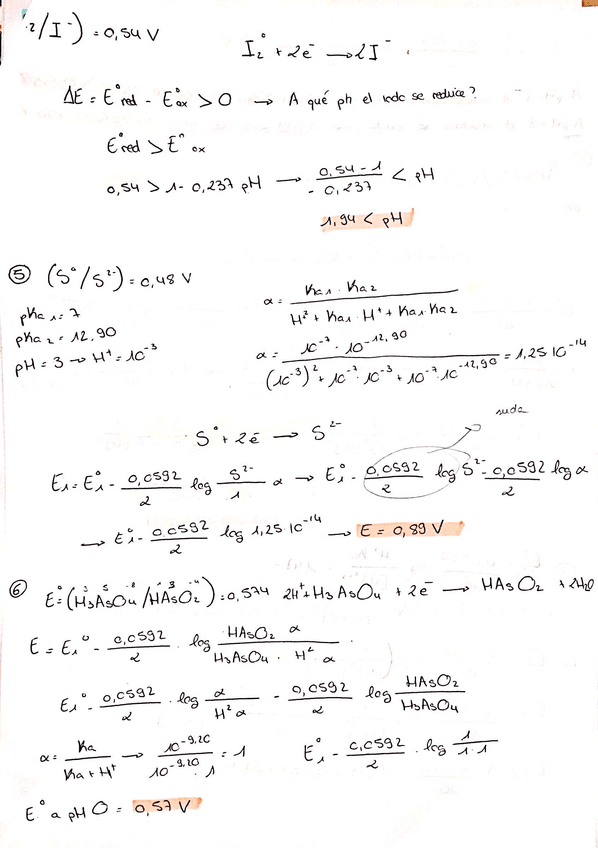 2/I⁻) = 0,54 V
I₂° + 2e⁻ → 2I⁻
ΔE = E°red - E°ox > 0 → A qué ph el iodo se reduce?
E°red > E°ox
0,54 > 1 - 0,237 pH → (0,54 - 1)/(-0,237) < pH
1,94 < pH
⑤ (S°/S²⁻) = 0,48 V
pKa₁ = 7
pKa₂ = 12,90
pH = 3 → H⁺ = 10⁻³
α = (Ka₁ · Ka₂)/(H² + Ka₁ · H⁺ + Ka₁ Ka₂)
α = (10⁻⁷ · 10⁻¹²,⁹⁰)/((10⁻³)² + 10⁻⁷ · 10⁻³ + 10⁻⁷ · 10⁻¹²,⁹⁰) = 1,25 10⁻¹⁴
suda
S° + 2e⁻ → S²⁻
E₁ = E₁° - (0,0592/2) log (S²⁻/1) α → E₁° - (0,0592/2) log S²⁻ - (0,0592/2) log α
→ E₁° - (0,0592/2) log 1,25 10⁻¹⁴ → E = 0,89 V
⑥ E° = (H₃AsO₄/HAsO₂) = 0,574 2H⁺ + H₃AsO₄ + 2e⁻ → HAsO₂ + 2H₂O
E = E₁° - (0,0592/2) · log (HAsO₂ α)/(H₃AsO₄ · H² α)
E₁° - (0,0592/2) · log (α/(H² α)) - (0,0592/2) log (HAsO₂/H₃AsO₄)
α = Ka/(Ka + H⁺) → 10⁻⁹,²⁰/(10⁻⁹,²⁰ · 1) = 1 E₁° - (0,0592/2) · log (1/(1·1))
E° a pH 0 = 0,57 V